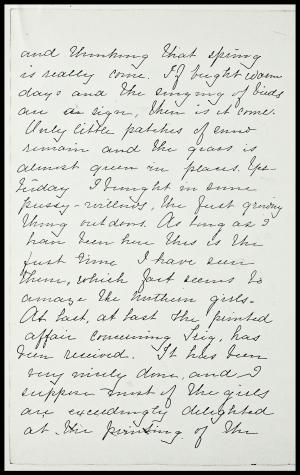 and thinking that spring
is really come. If bright warm
days and the singing of birds
are a sign, then is it come.
Only little patches of snow
remain and the grass is
almost green in places. Yes-
terday I brought in some
pussy-willows, the first growing
thing outdoors. As long as I
have been here this is the
first time I have seen
them, which fact seems to
amaze the northern girls.
At last, at last the printed
affair concerning Trig, has
been received. It has been
very nicely done, and I
suppose most of the girls
are exceedingly delighted
at the printing of the